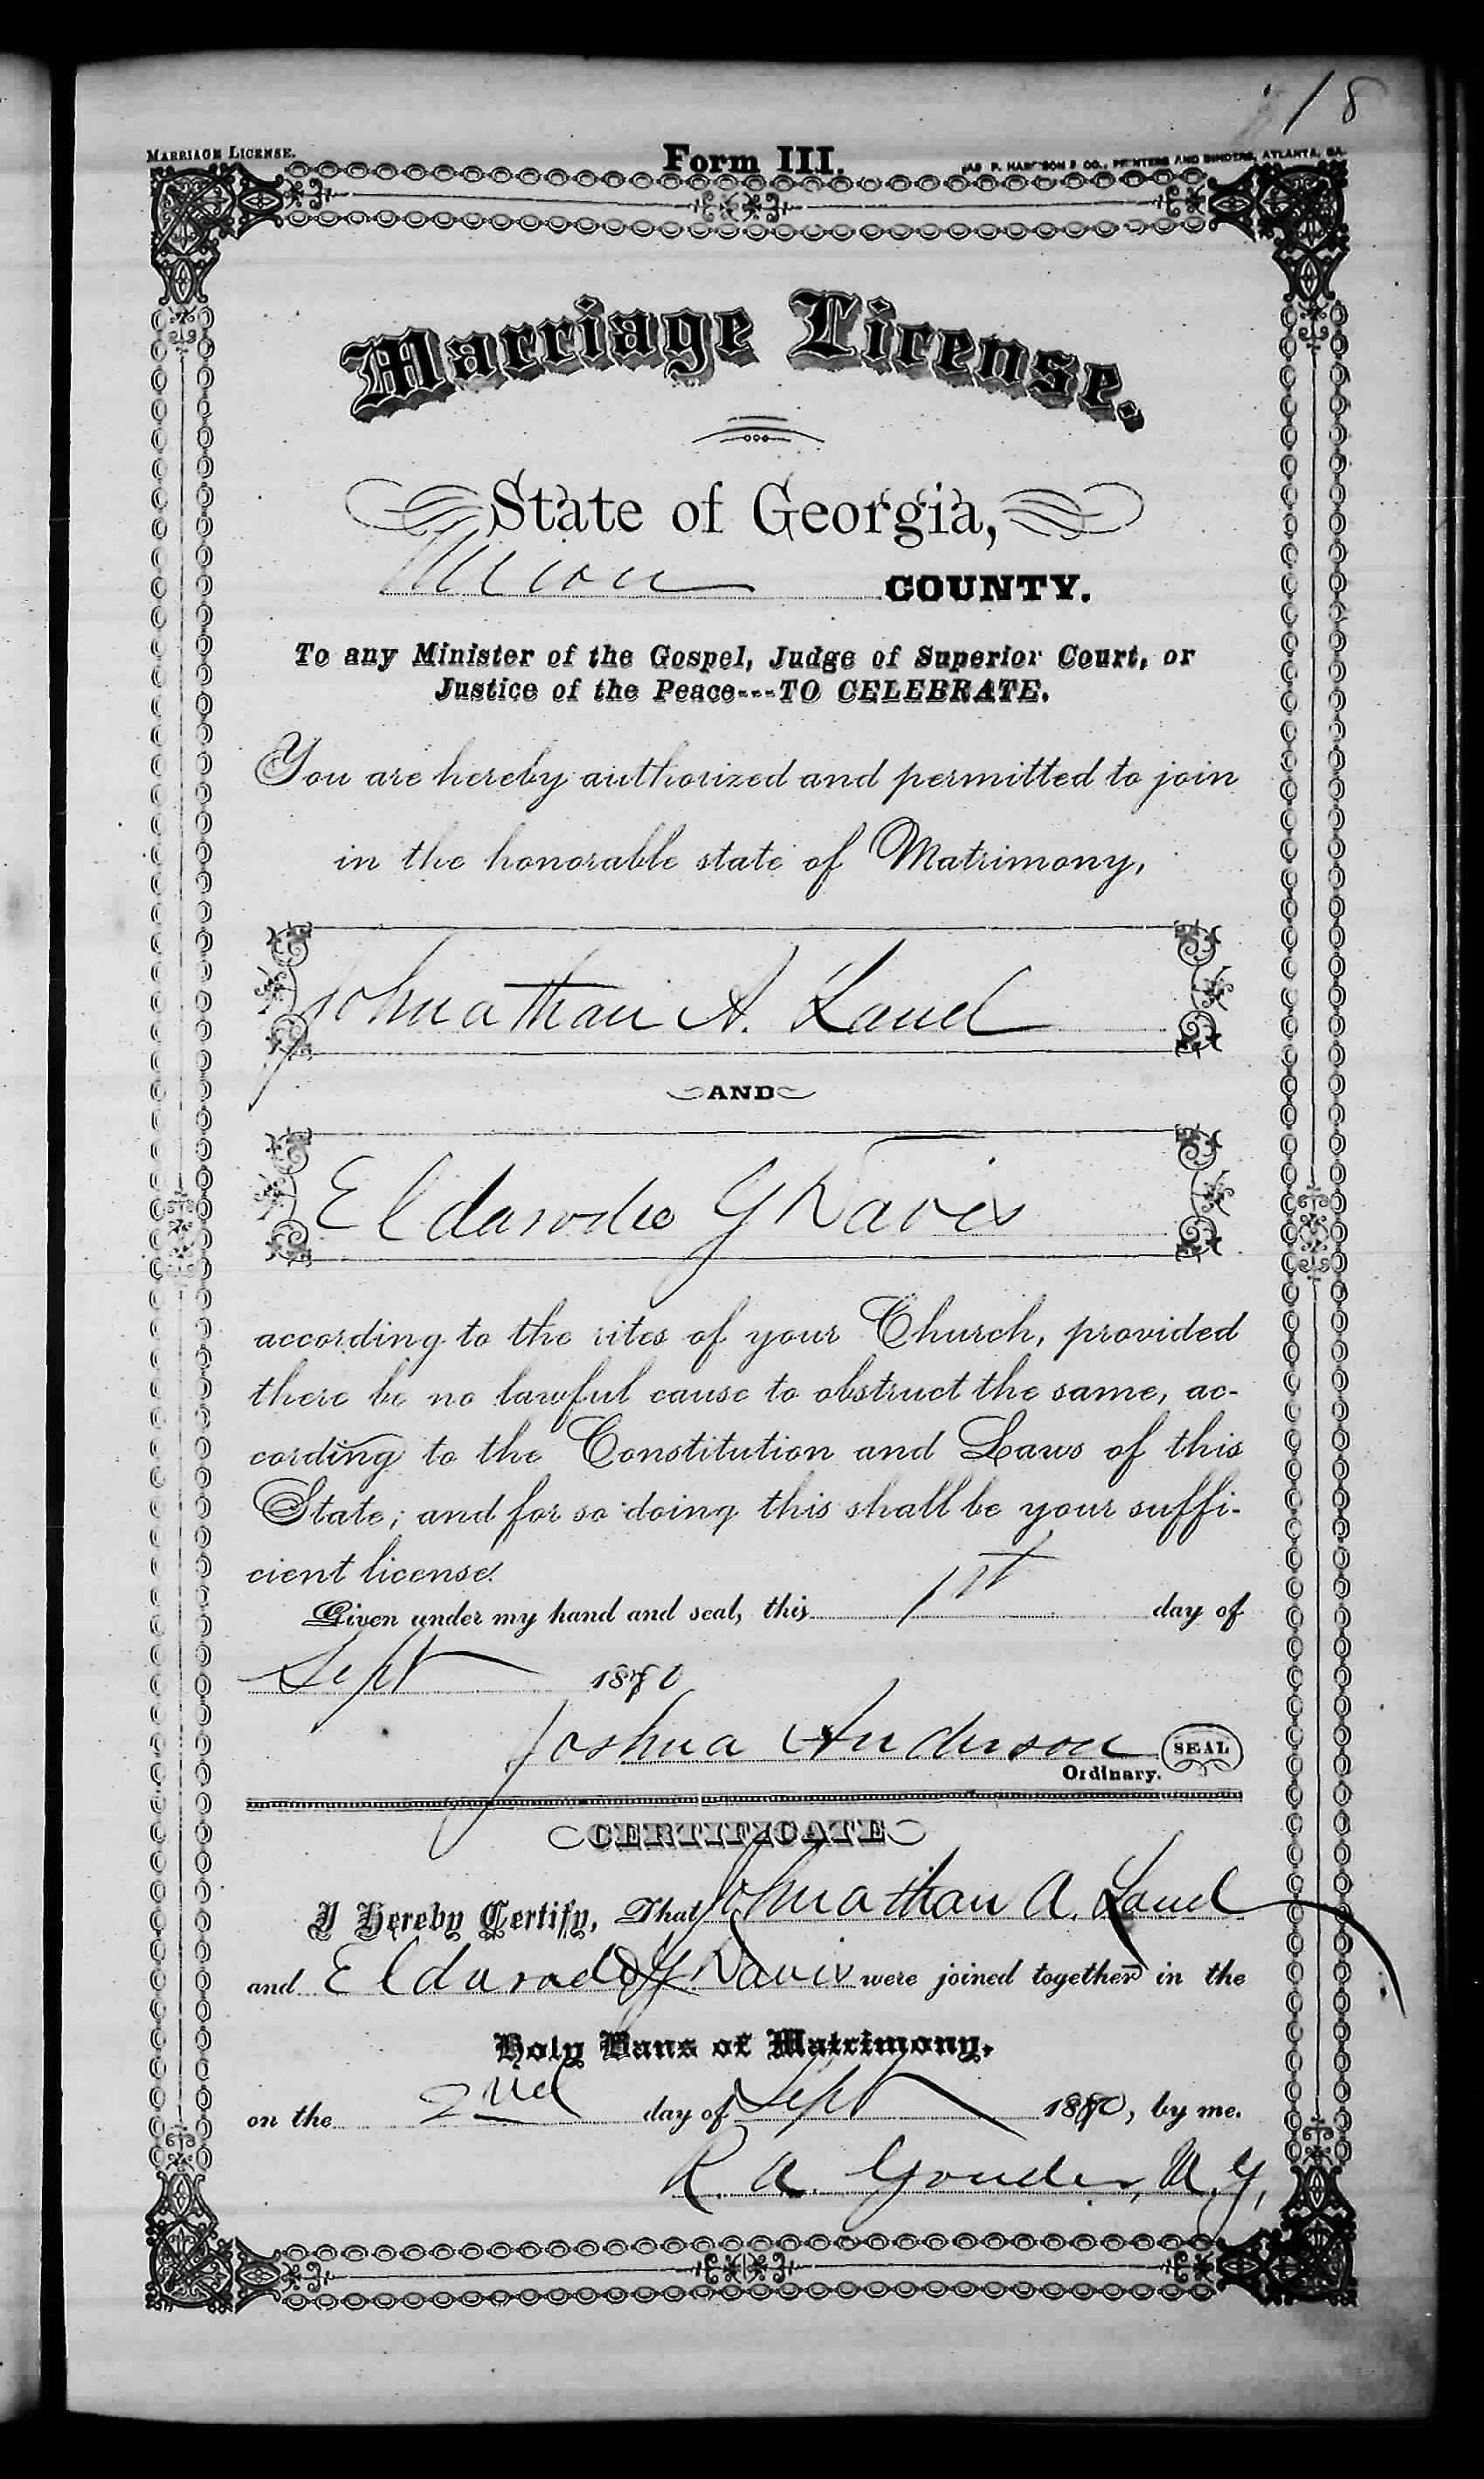 18
MARRIAGE LICENSE.
Form III.
JAS. P. HARRISON & CO., PRINTERS AND BINDERS, ATLANTA, GA.
Marriage License.
State of Georgia,
Union COUNTY.
To any Minister of the Gospel, Judge of Superior Court, or
Justice of the Peace---TO CELEBRATE.
You are hereby authorized and permitted to join
in the honorable state of Matrimony,
Johnathan A. Land
AND
Eldarodo G Davis
according to the rites of your Church, provided
there be no lawful cause to obstruct the same, ac-
cording to the Constitution and Laws of this
State; and for so doing this shall be your suffi-
cient license.
Given under my hand and seal, this 1st day of
Sept 1880
Joshua Anderson SEAL
Ordinary.
CERTIFICATE
I Hereby Certify, That Johnathan A. Land
and Eldarado G Davis were joined together in the
Holy Bans of Matrimony,
on the 2nd day of Sept 1880, by me.
R. A.